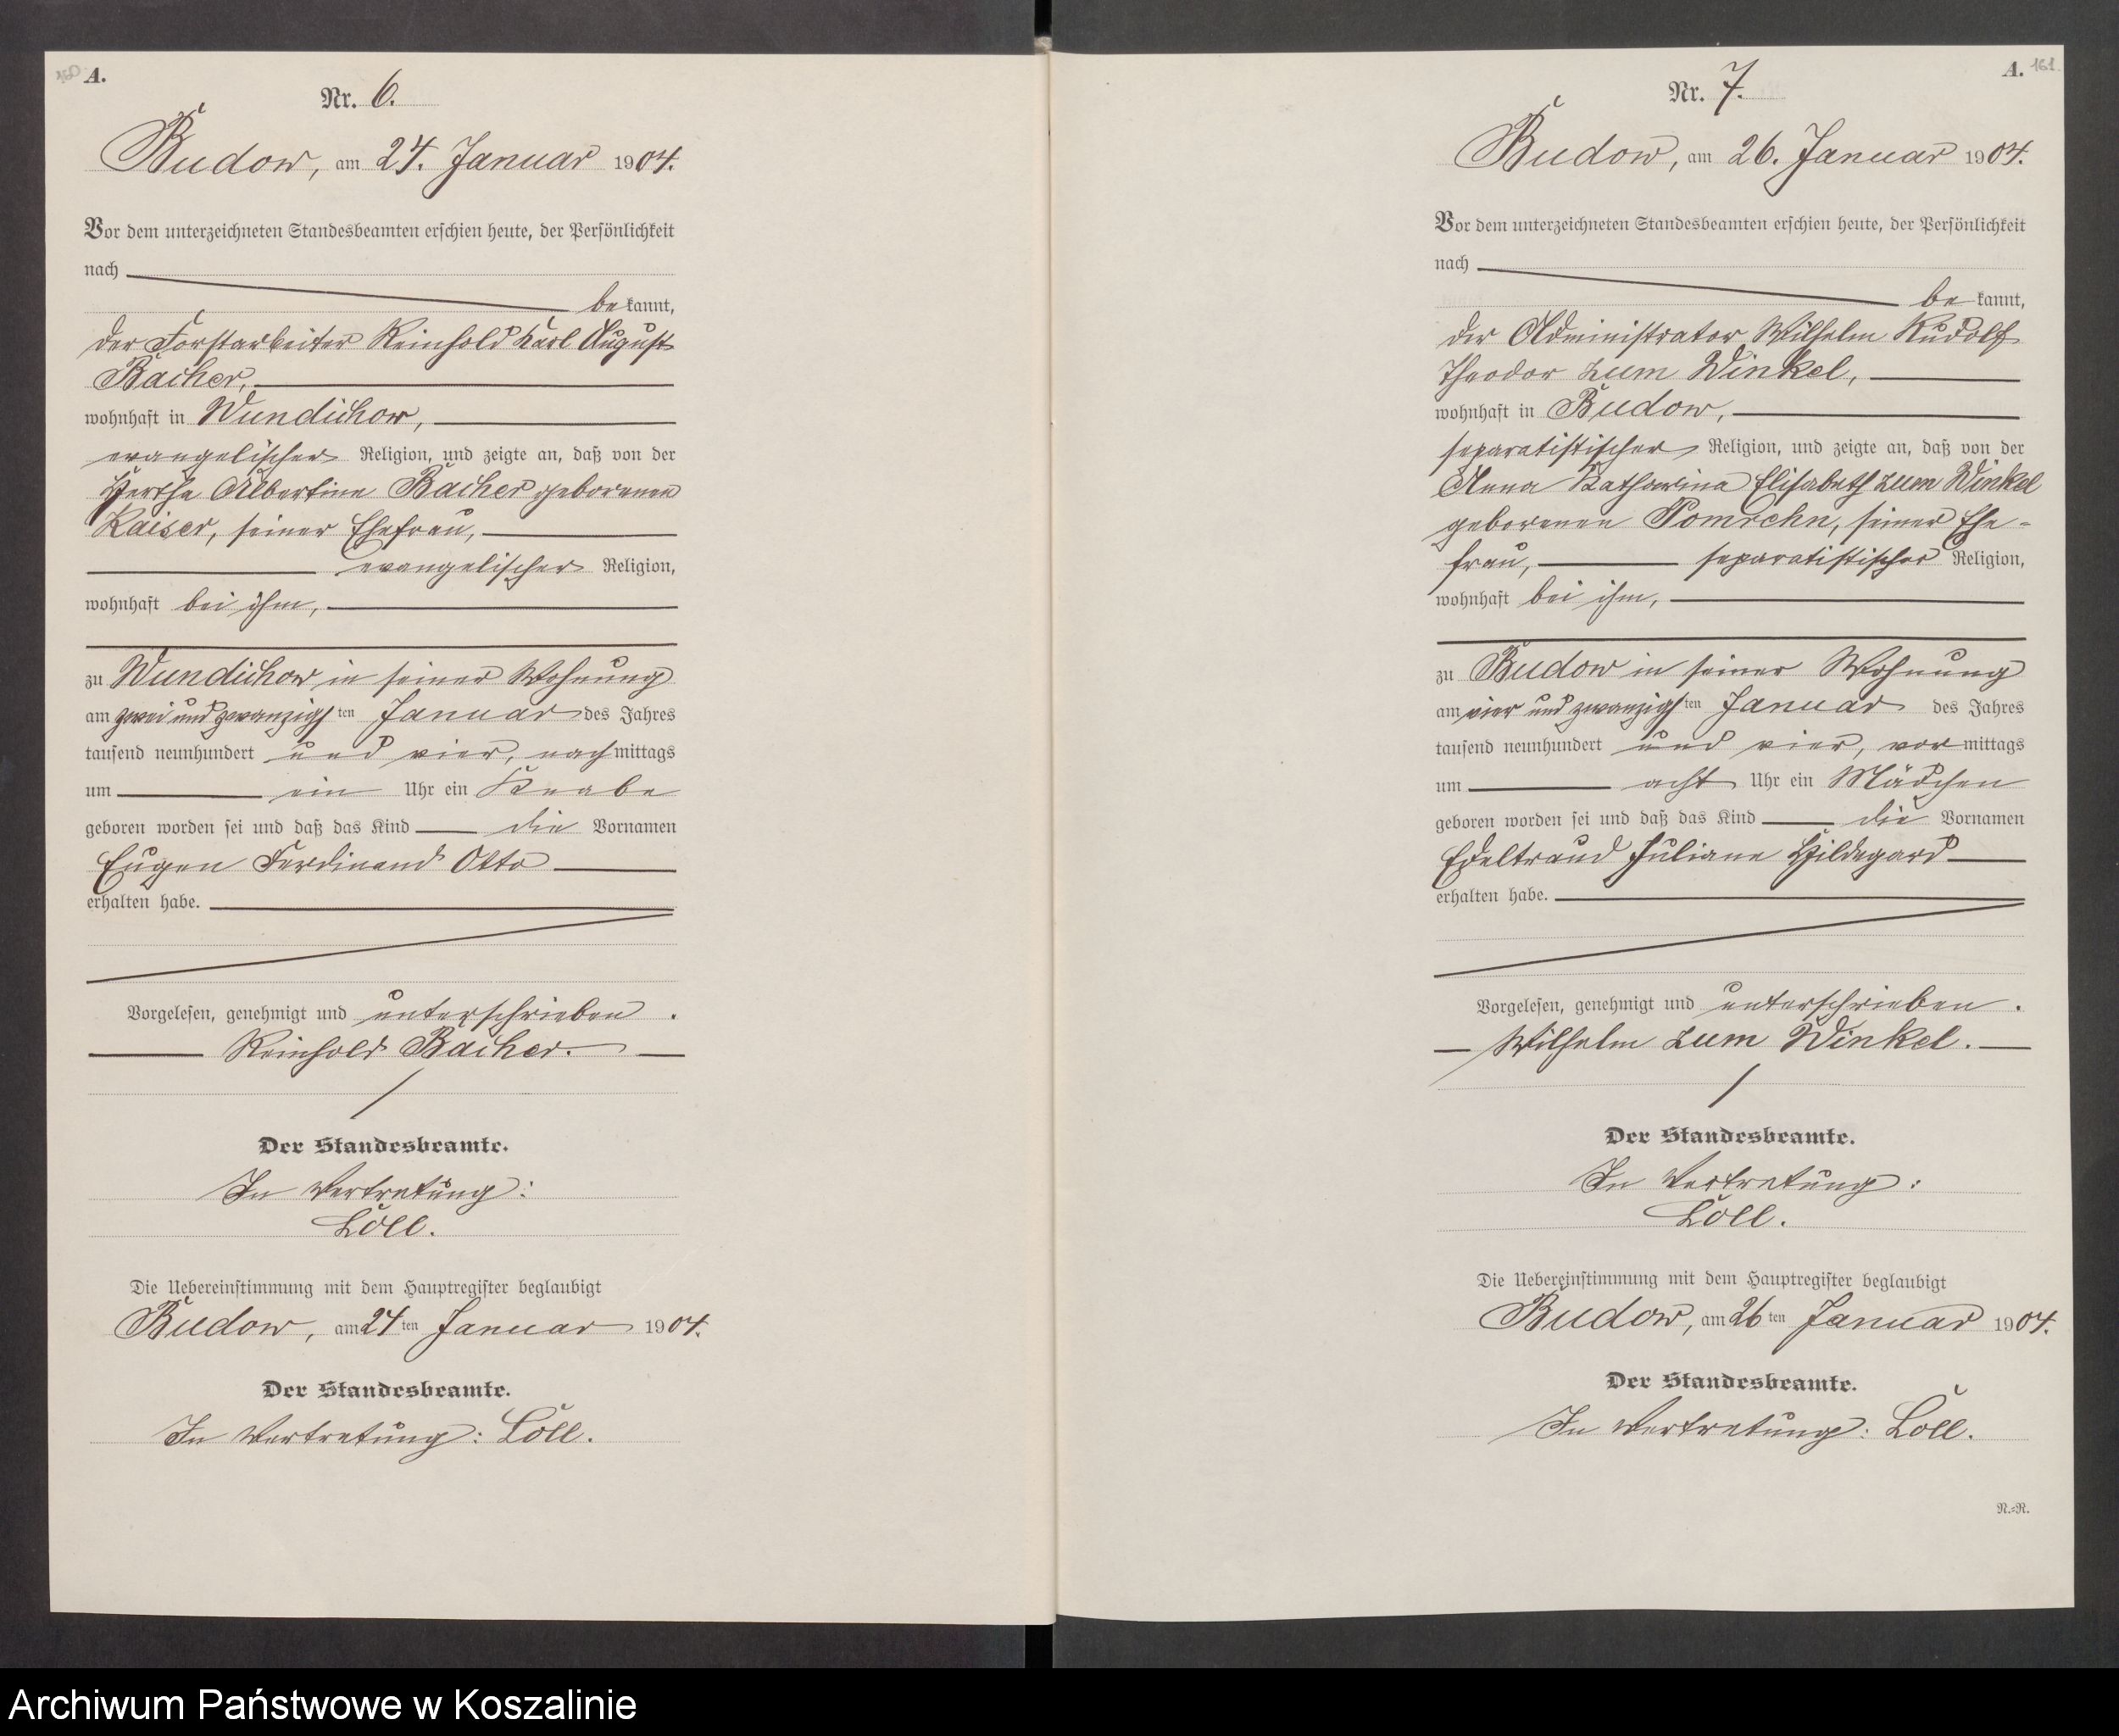 160 A.
Nr. 6.
Budow, am 24. Januar 1904.
Vor dem unterzeichneten Standesbeamten erschien heute, der Persönlichkeit
nach
be kannt,
der Forstarbeiter Reinhold Karl August
Bacher,
wohnhaft in Wundichow,
evangelischer Religion, und zeigte an, daß von der
Hertha Albertine Bacher geborenen
Kaiser, seiner Ehefrau,
evangelischer Religion,
wohnhaft bei ihm,
zu Wundichow in seiner Wohnung
am zwei und zwanzigsten Januar des Jahres
tausend neunhundert und vier, nachmittags
um ein Uhr ein Knabe
geboren worden sei und daß das Kind die Vornamen
Eugen Ferdinand Otto
erhalten habe.
Vorgelesen, genehmigt und unterschrieben.
Reinhold Bacher.
Der Standesbeamte.
In Vertretung:
Löll.
Die Uebereinstimmung mit dem Hauptregister beglaubigt
Budow, am 24ten Januar 1904.
Der Standesbeamte.
In Vertretung: Löll.
A. 161
Nr. 7.
Budow, am 26. Januar 1904.
Vor dem unterzeichneten Standesbeamten erschien heute, der Persönlichkeit
nach
be kannt,
der Administrator Wilhelm Rudolf
Theodor zum Winkel,
wohnhaft in Budow,
separatistischer Religion, und zeigte an, daß von der
Anna Katharina Elisabeth zum Winkel
geborenen Pomrehn, seiner Ehe-
frau, separatistischer Religion,
wohnhaft bei ihm,
zu Budow in seiner Wohnung
am vier und zwanzigsten Januar des Jahres
tausend neunhundert und vier, vormittags
um acht Uhr ein Mädchen
geboren worden sei und daß das Kind die Vornamen
Edeltraud Juliane Hildegard
erhalten habe.
Vorgelesen, genehmigt und unterschrieben.
Wilhelm zum Winkel.
Der Standesbeamte.
In Vertretung:
Löll.
Die Uebereinstimmung mit dem Hauptregister beglaubigt
Budow, am 26ten Januar 1904.
Der Standesbeamte.
In Vertretung: Löll.
N.=R.
Archiwum Państwowe w Koszalinie